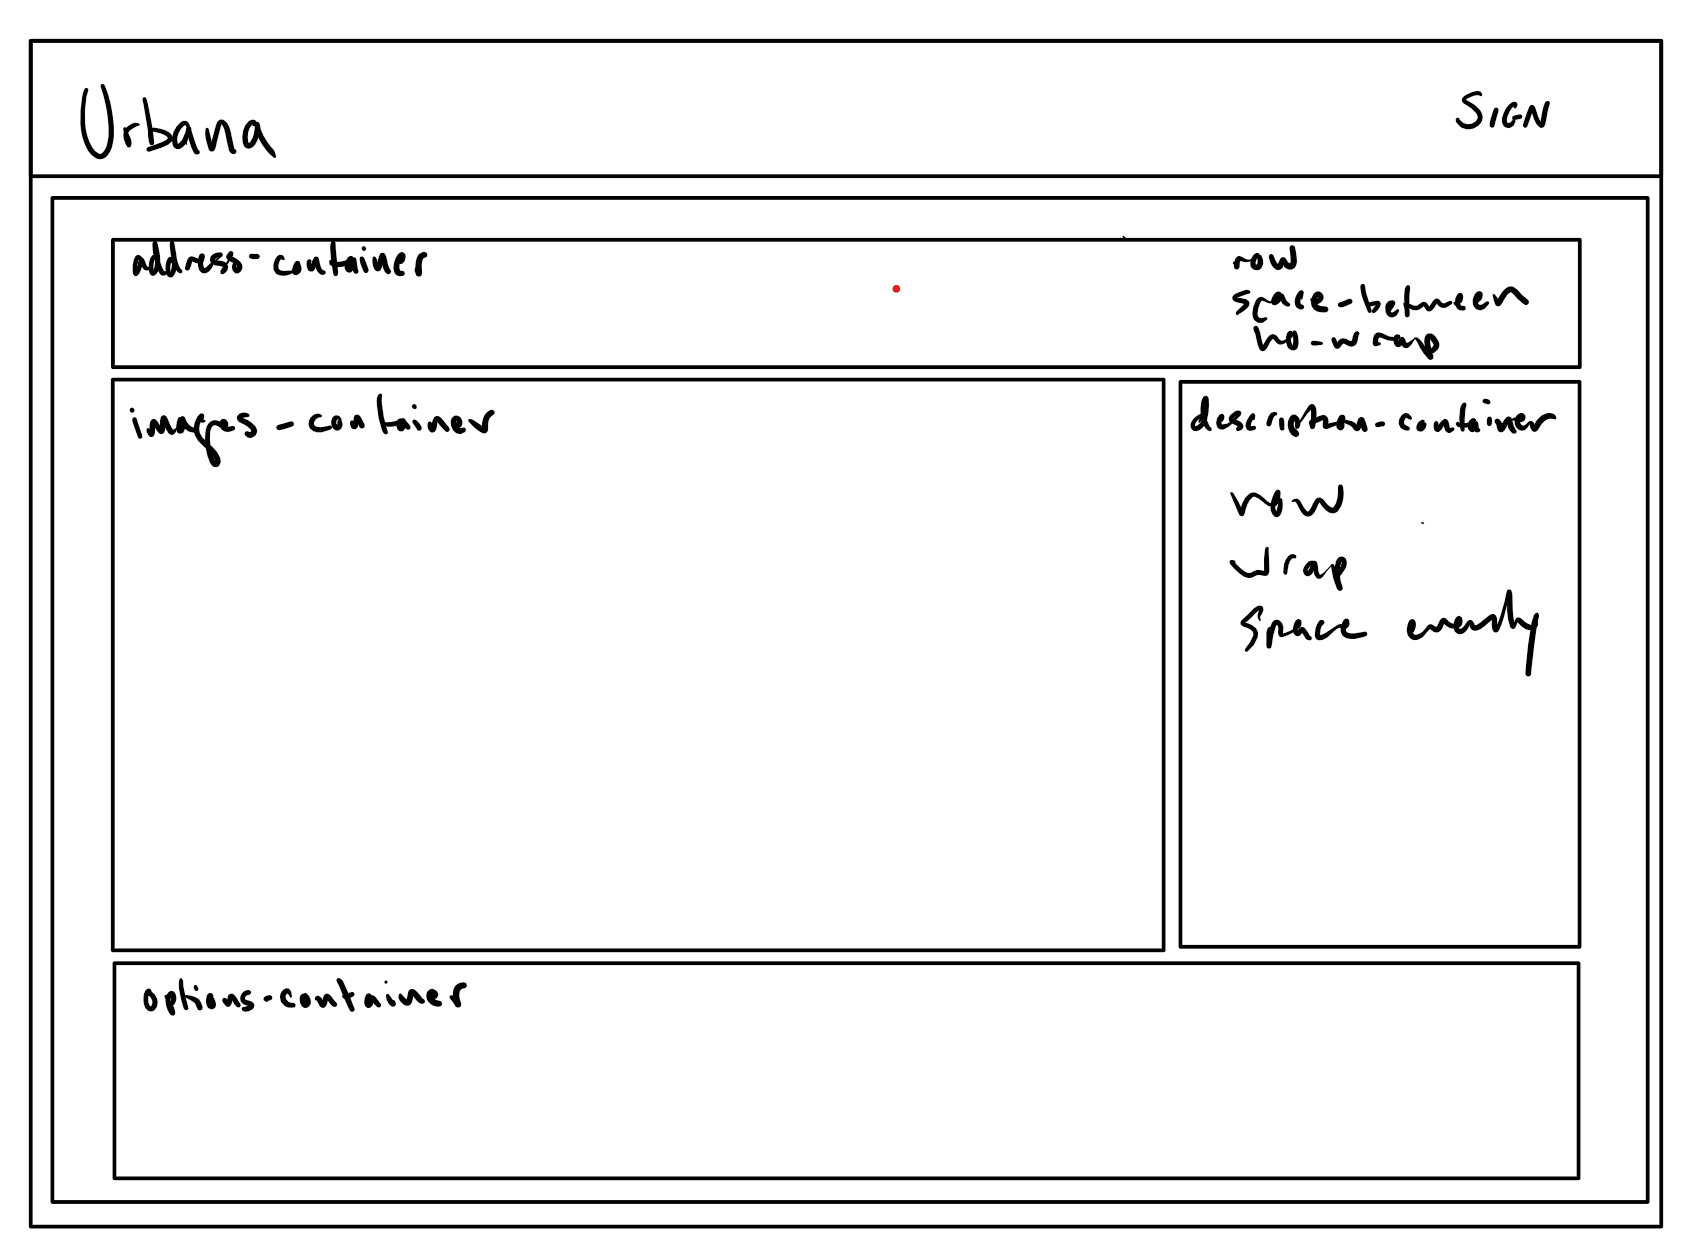 Urbana
SIGN
address-container
row
space-between
no-wrap
images-container
description-container
row
wrap
space evenly
options-container